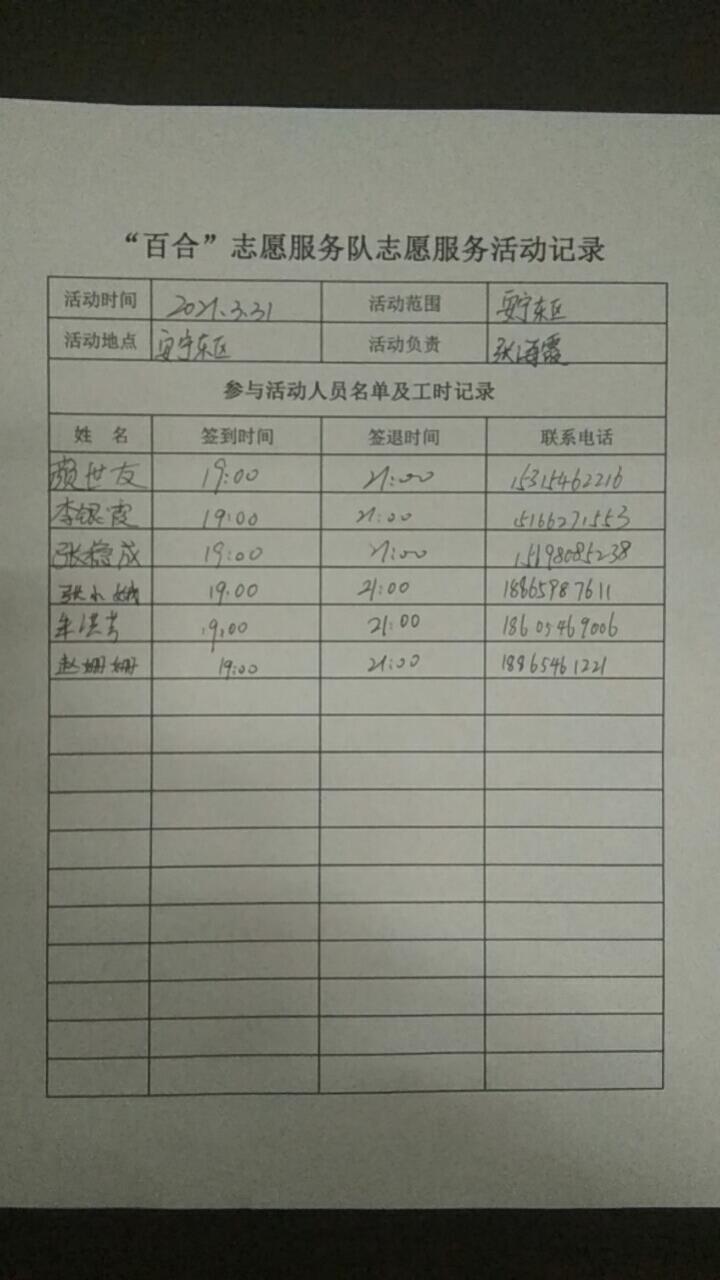 “百合”志愿服务队志愿服务活动记录
活动时间 2021.3.31 活动范围 安宁东区
活动地点 安宁东区 活动负责 张海霞
参与活动人员名单及工时记录
姓 名 签到时间 签退时间 联系电话
颜世友 19:00 21:00 15315462216
李银霞 19:00 21:00 15166271553
张稳成 19:00 21:00 15198085238
张小娥 19:00 21:00 18865987611
19:00 21:00 18605469006
赵姗姗 19:00 21:00 18865461221